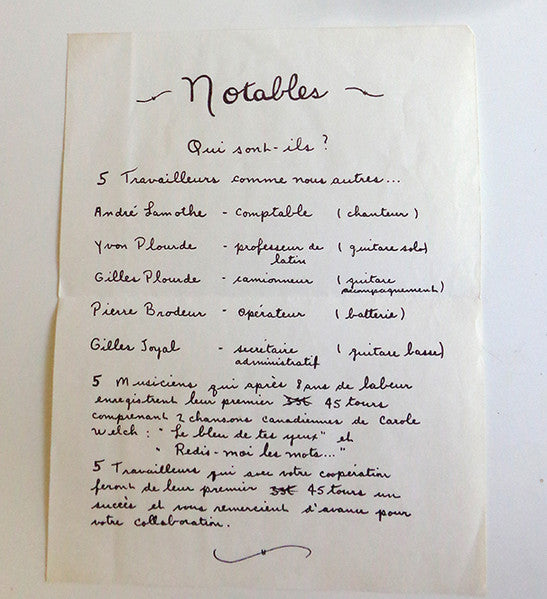 Notables
Qui sont-ils ?
5 Travailleurs comme nous autres...
André Lamothe - comptable (chanteur)
Yvon Plourde - professeur de latin (guitare solo)
Gilles Plourde - camionneur (guitare acompagnement)
Pierre Brodeur - opérateur (batterie)
Gilles Joyal - secrétaire administratif (guitare basse)
5 Musiciens qui après 8 ans de labeur
enregistrent leur premier 45 tours
comprenant 2 chansons canadiennes de Carole
Welch : " Le bleu de tes yeux" et
" Redis-moi les mots..."
5 Travailleurs qui avec votre coopération
feront de leur premier 45 tours un
succès et vous remercient d'avance pour
votre collaboration.